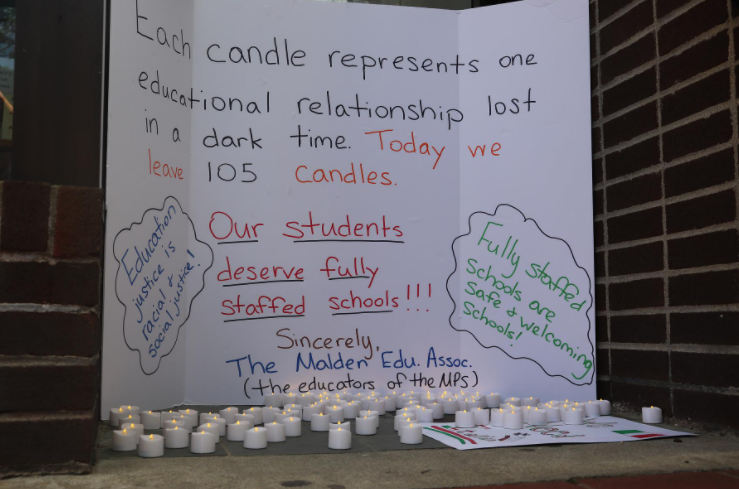 Each candle represents one
educational relationship lost
in a dark time. Today we
leave 105 candles.
Our students
deserve fully
staffed schools!!!
Education
justice is
racial +
social justice!
Fully staffed
schools are
safe + welcoming
schools!
Sincerely,
The Malden Edu. Assoc.
(the educators of the MPs)